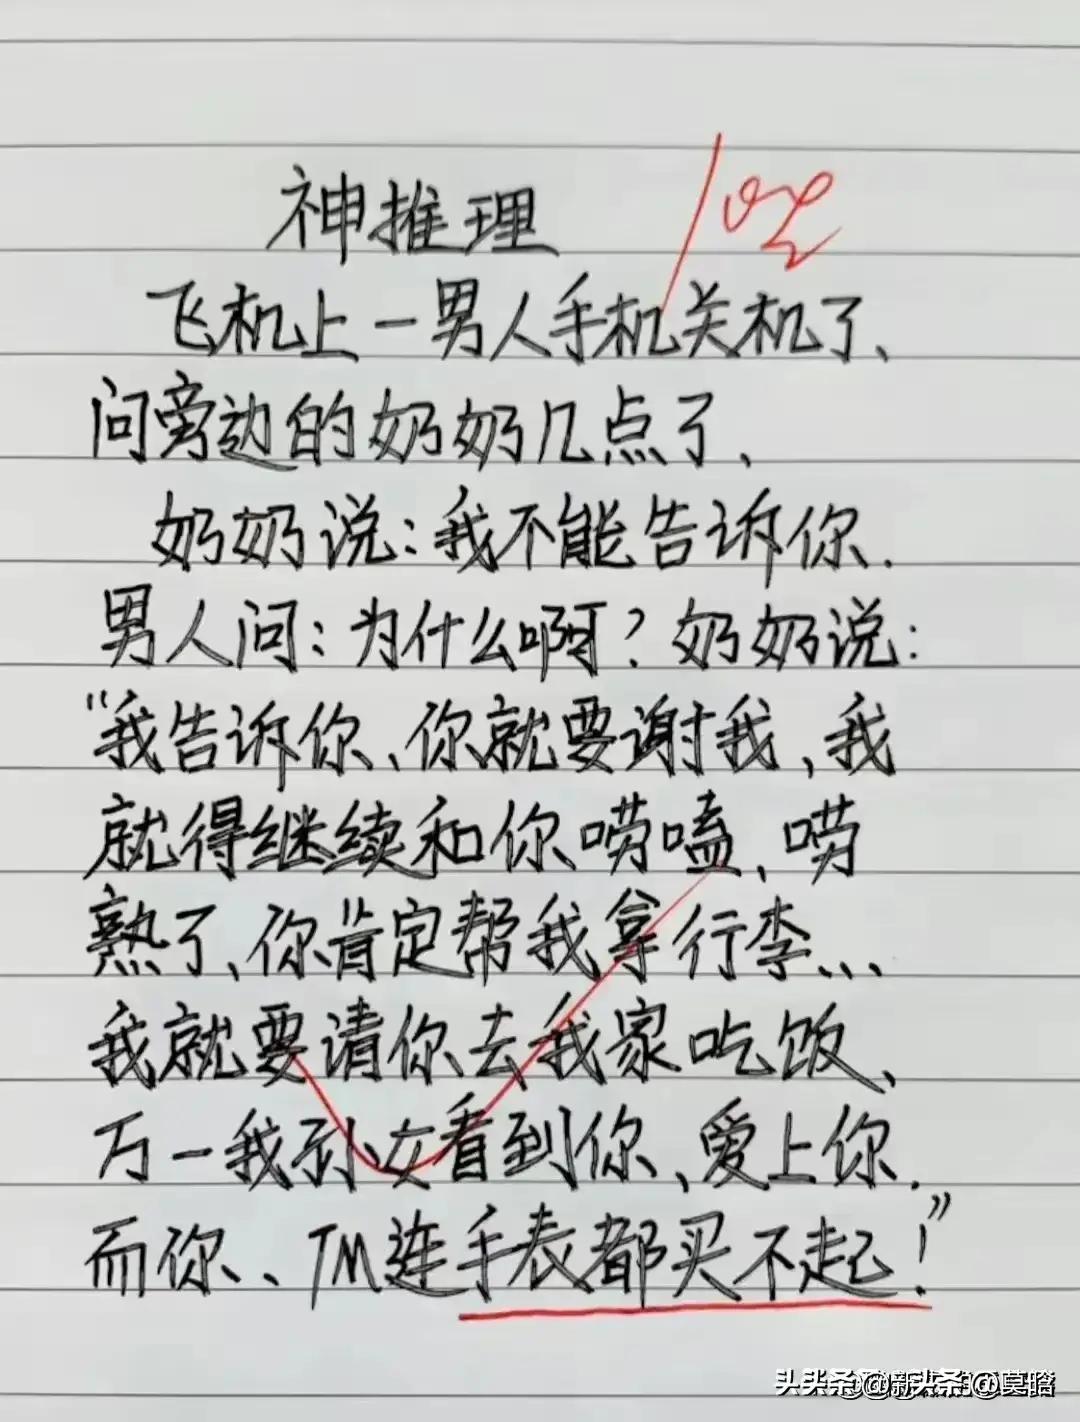 神推理
飞机上一男人手机关机了、
问旁边的奶奶几点了、
奶奶说：我不能告诉你.
男人问：为什么啊？奶奶说：
“我告诉你、你就要谢我，我
就得继续和你唠嗑、唠
熟了、你肯定帮我拿行李、、、
我就要请你去我家吃饭、
万一我孙女看到你、爱上你.
而你、TM连手表都买不起！”